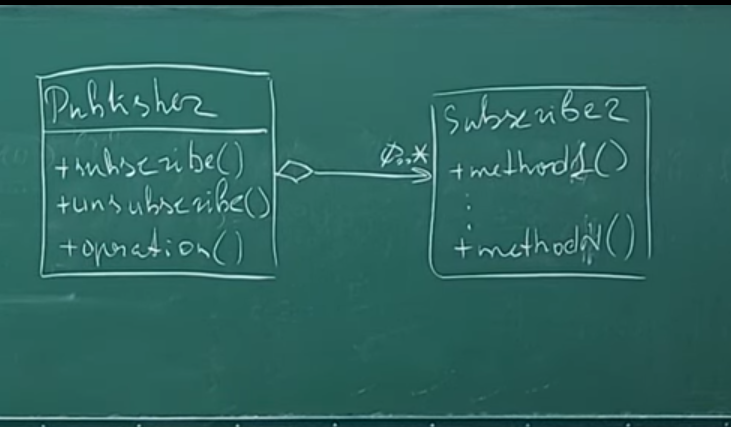 Publisher
+subscribe()
+unsubscribe()
+operation()
0..*
Subscriber
+method1()
⋮
+methodN()